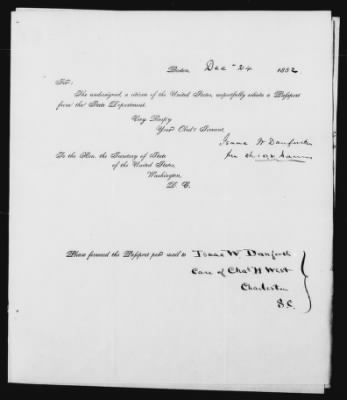 Boston, Dec 24 1852
Sir:
The undersigned, a citizen of the United States, respectfully solicits a Passport
from the State Department.
Very Resp'y
Your Obed't Servant,
Isaac W Danforth
To the Hon. the Secretary of State
of the United States,
Washington,
D. C.
Please forward the Passport per mail to Isaac W. Danforth
Care of Chas H West
Charleston
S.C.